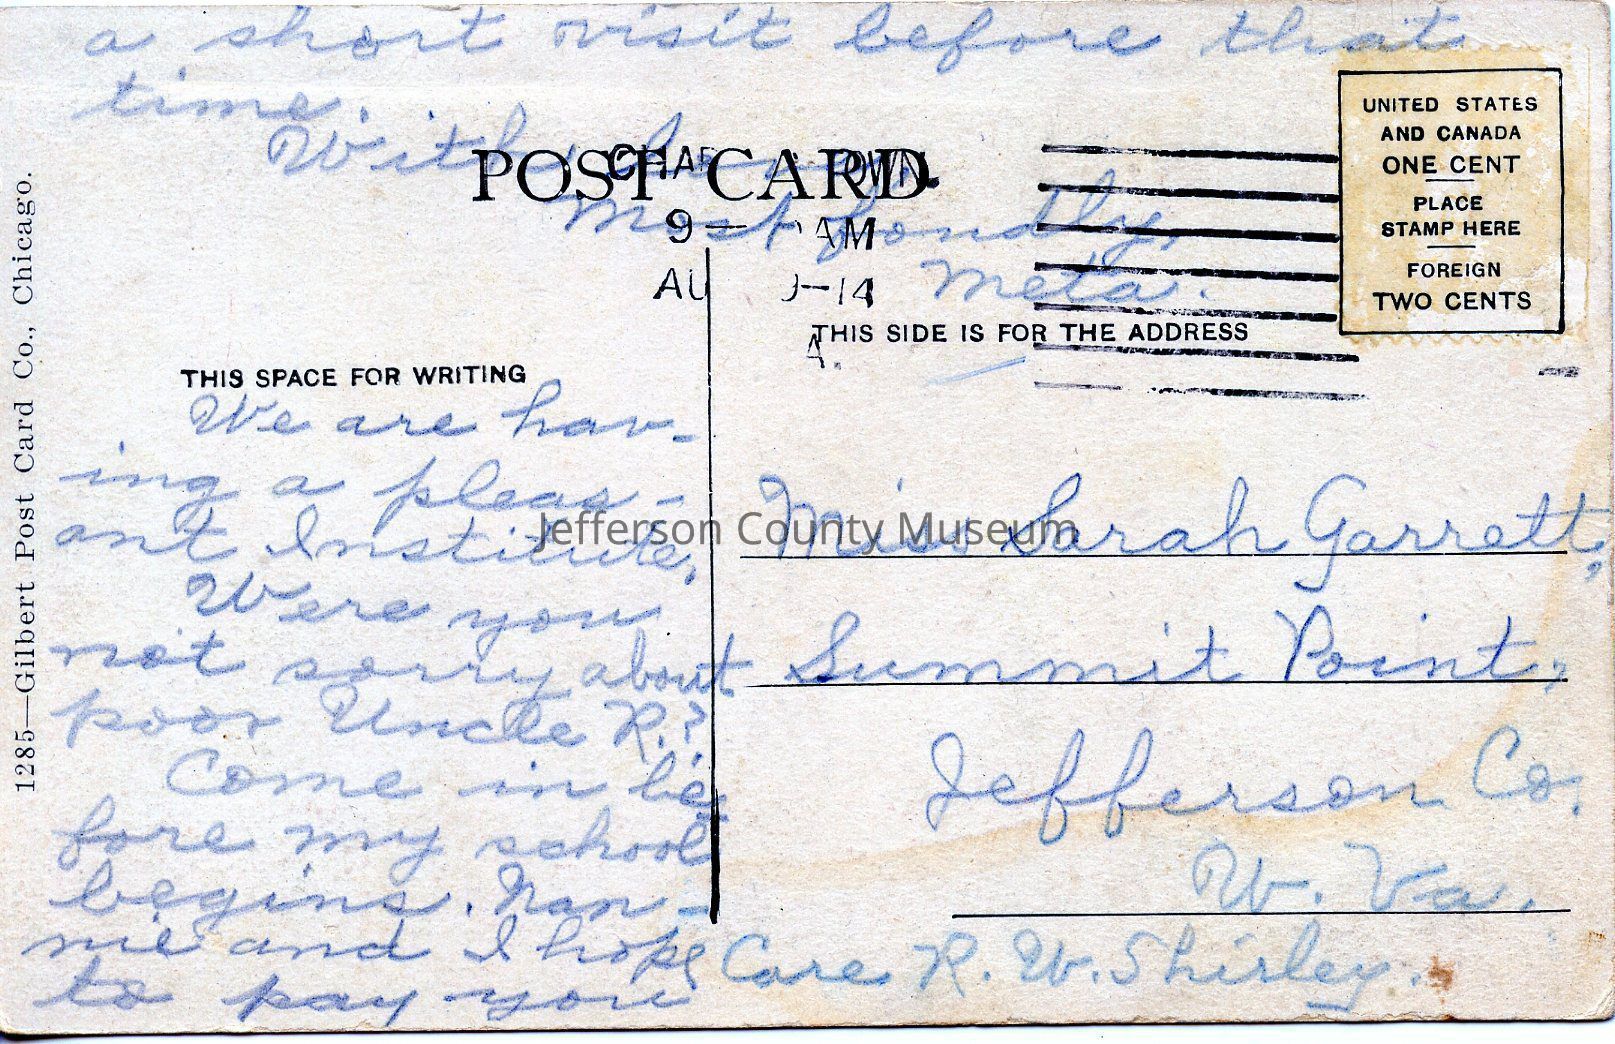 a short visit before that
time.
With
POST CARD
9— AM
AU 9-14
Most fondly,
Meta.
UNITED STATES
AND CANADA
ONE CENT
PLACE
STAMP HERE
FOREIGN
TWO CENTS
THIS SIDE IS FOR THE ADDRESS
THIS SPACE FOR WRITING
We are hav-
ing a pleas-
ant Institute.
Were you
not sorry about
poor Uncle R.?
Come in be
fore my school
begins. Nan-
nie and I hope
to pay you
Miss Sarah Garrett,
Summit Point,
Jefferson Co.
W. Va.
Care R. W. Shirley.
Jefferson County Museum
1285—Gilbert Post Card Co., Chicago.